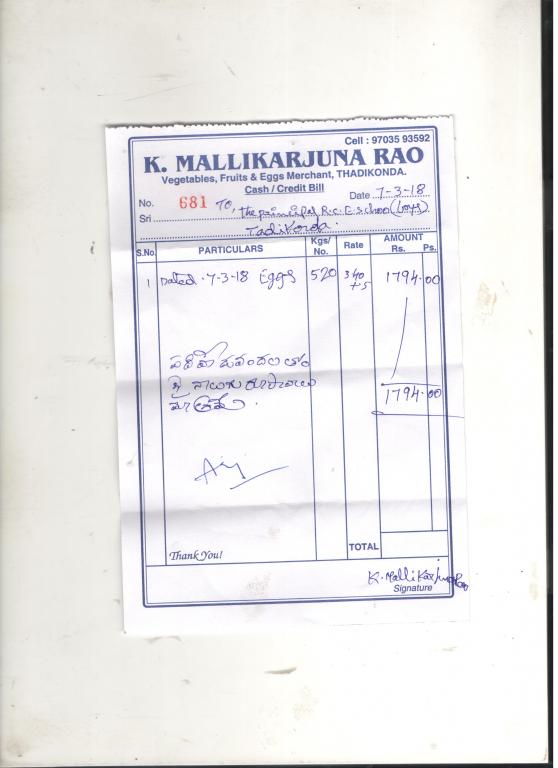 Cell : 97035 93592
K. MALLIKARJUNA RAO
Vegetables, Fruits & Eggs Merchant, THADIKONDA.
Cash / Credit Bill
No. 681 Date 7-3-18
Sri To, the principal R.C.E. School (boys)
Tadikonda.
S.No. PARTICULARS Kgs/ No. Rate AMOUNT Rs. Ps.
1 Dated. 7-3-18 Eggs 520 340 1794.00
నాలుగు రూపాయలు
మాత్రమే.
1794.00
TOTAL
Thank You!
K. Mallikarjuna Rao
Signature